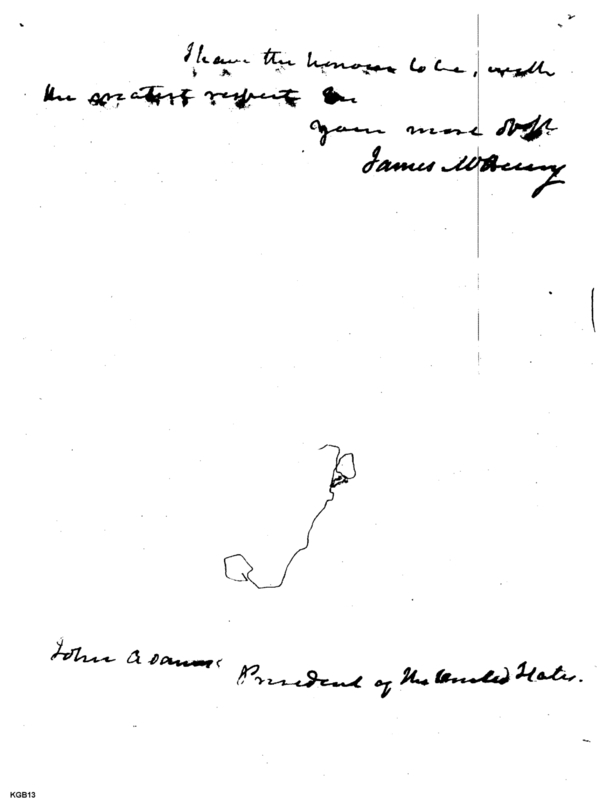 I have the honour to be, with
the greatest respect Sir
your most obdt
James McHenry
John Adams
President of the United States.
KGB13